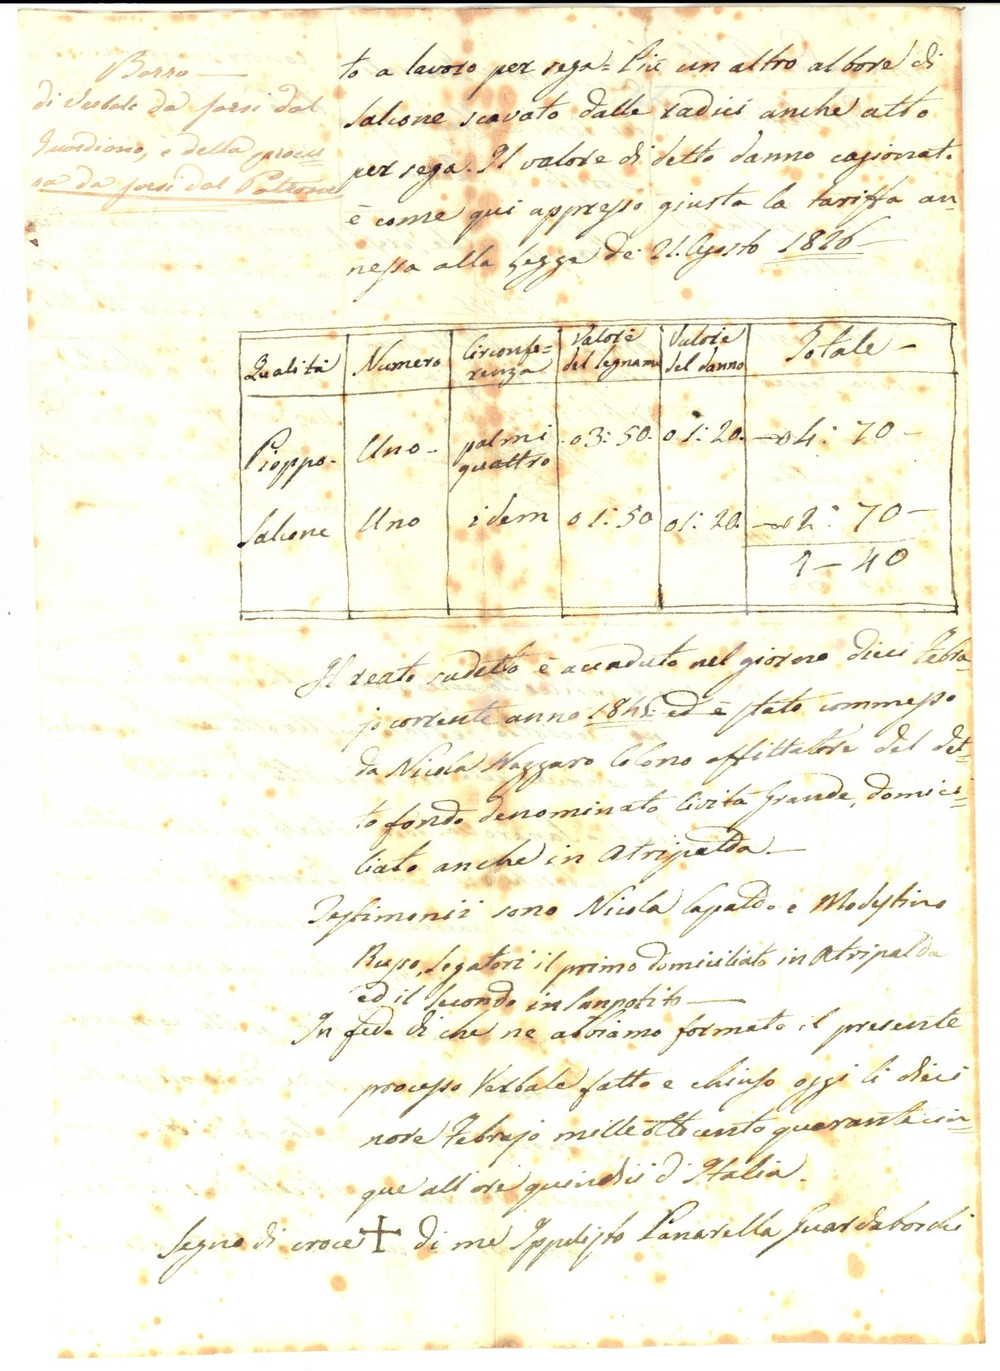 Borro
di Verbale da farsi dal
Guardiano, e della procu=
ra da farsi dal Patrone
to a lavoro per sega= Più un altro albore di
Salcone scavato dalle radici anche atto
per sega. Il valore di detto danno cagionato
è come qui appresso giusta la tariffa an=
nessa alla Legge de' 21. Agosto 1826 —
Qualità Numero Circonfe=renza Valore del legname Valore del danno Totale —
Pioppo- Uno- palmi quattro 03: 50. 01: 20. —04: 70—
Salcone Uno idem 01: 50 01: 20. —02: 70—
7 — 40
Il reato sudetto è accaduto nel giorno dieci Febra=
jo corrente anno 1845 ed è stato commesso
da Nicola Nazzaro Colono affittatore del det=
to fondo denominato Civita Grande, domici=
liato anche in Atripalda. —
Testimonii sono Nicola Capaldo e Modestino
Russo, Segatori il primo domiciliato in Atripalda
ed il secondo in Sanpotito —
In fede di che ne abbiamo formato il presente
processo Verbale fatto e chiuso oggi li dieci
nove Febrajo mille ottocento quarantacin=
que all'ore quindici d'Italia.
Segno di croce ✝ di me Ippolisto Panarella Guardaboschi